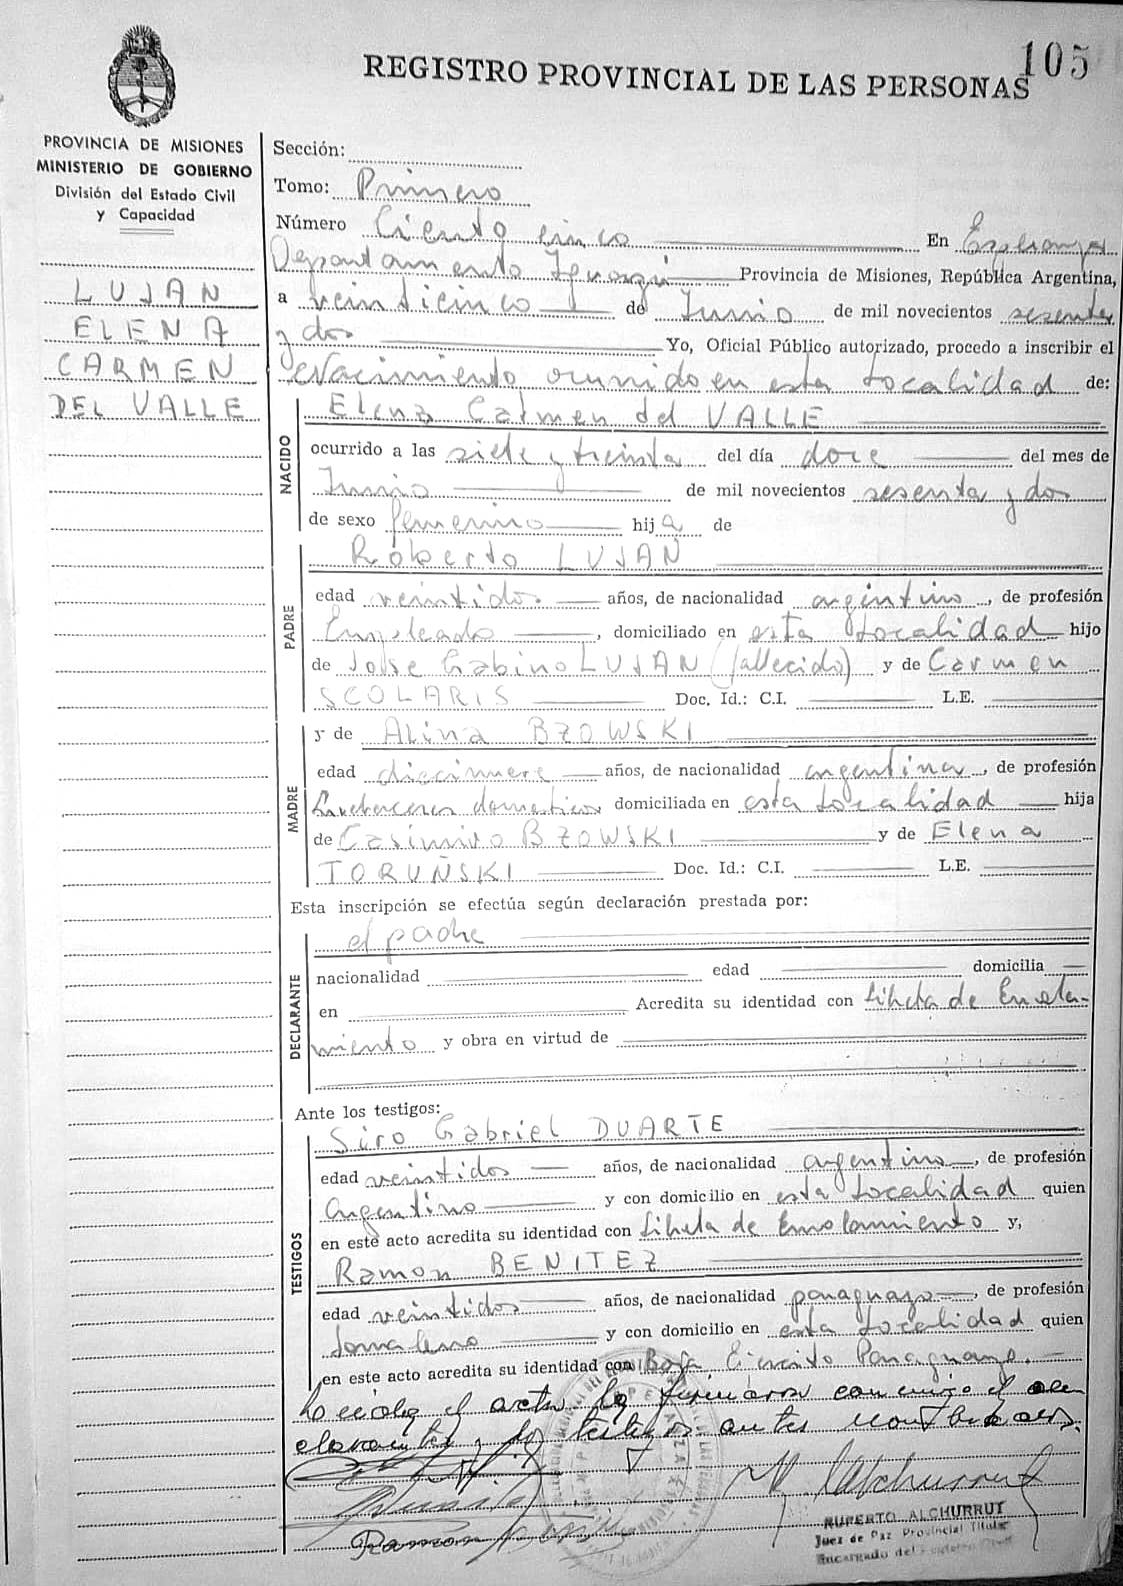 105
REGISTRO PROVINCIAL DE LAS PERSONAS
PROVINCIA DE MISIONES
MINISTERIO DE GOBIERNO
División del Estado Civil
y Capacidad
LUJAN
ELENA
CARMEN
DEL VALLE
Sección:
Tomo: Primero
Número Ciento cinco En Esperanza
Departamento Iguazú Provincia de Misiones, República Argentina,
a veinticinco de Junio de mil novecientos sesenta
y dos Yo, Oficial Público autorizado, procedo a inscribir el
Nacimiento ocurrido en esta Localidad de:
NACIDO
Elena Carmen del VALLE
ocurrido a las siete y treinta del día doce del mes de
Junio de mil novecientos sesenta y dos
de sexo femenino hija de
PADRE
Roberto LUJAN
edad veintidos años, de nacionalidad argentino, de profesión
Empleado, domiciliado en esta Localidad hijo
de Jose Gabino LUJAN (fallecido) y de Carmen
SCOLARIS Doc. Id.: C.I. L.E.
MADRE
y de Alina BZOWSKI
edad diecinueve años, de nacionalidad argentina, de profesión
domesticos domiciliada en esta Localidad hija
de Casimiro BZOWSKI y de Elena
TORUÑSKI Doc. Id.: C.I. L.E.
Esta inscripción se efectúa según declaración prestada por:
DECLARANTE
el padre
nacionalidad edad domicilia
en Acredita su identidad con Libreta de Enrola-
miento y obra en virtud de
Ante los testigos:
TESTIGOS
Siro Gabriel DUARTE
edad veintidos años, de nacionalidad argentino, de profesión
Argentino y con domicilio en esta Localidad quien
en este acto acredita su identidad con Libreta de Enrolamiento y,
Ramon BENITEZ
edad veintidos años, de nacionalidad paraguayo, de profesión
Jornalero y con domicilio en esta Localidad quien
en este acto acredita su identidad con Baja Ejercito Paraguayo.
Leida el acta la firmaron conmigo el de
clarante y los testigos antes nombrados.
Ramón
RUPERTO ALCHURRUT
Juez de Paz Provincial Titular
Encargado del Registro Civil